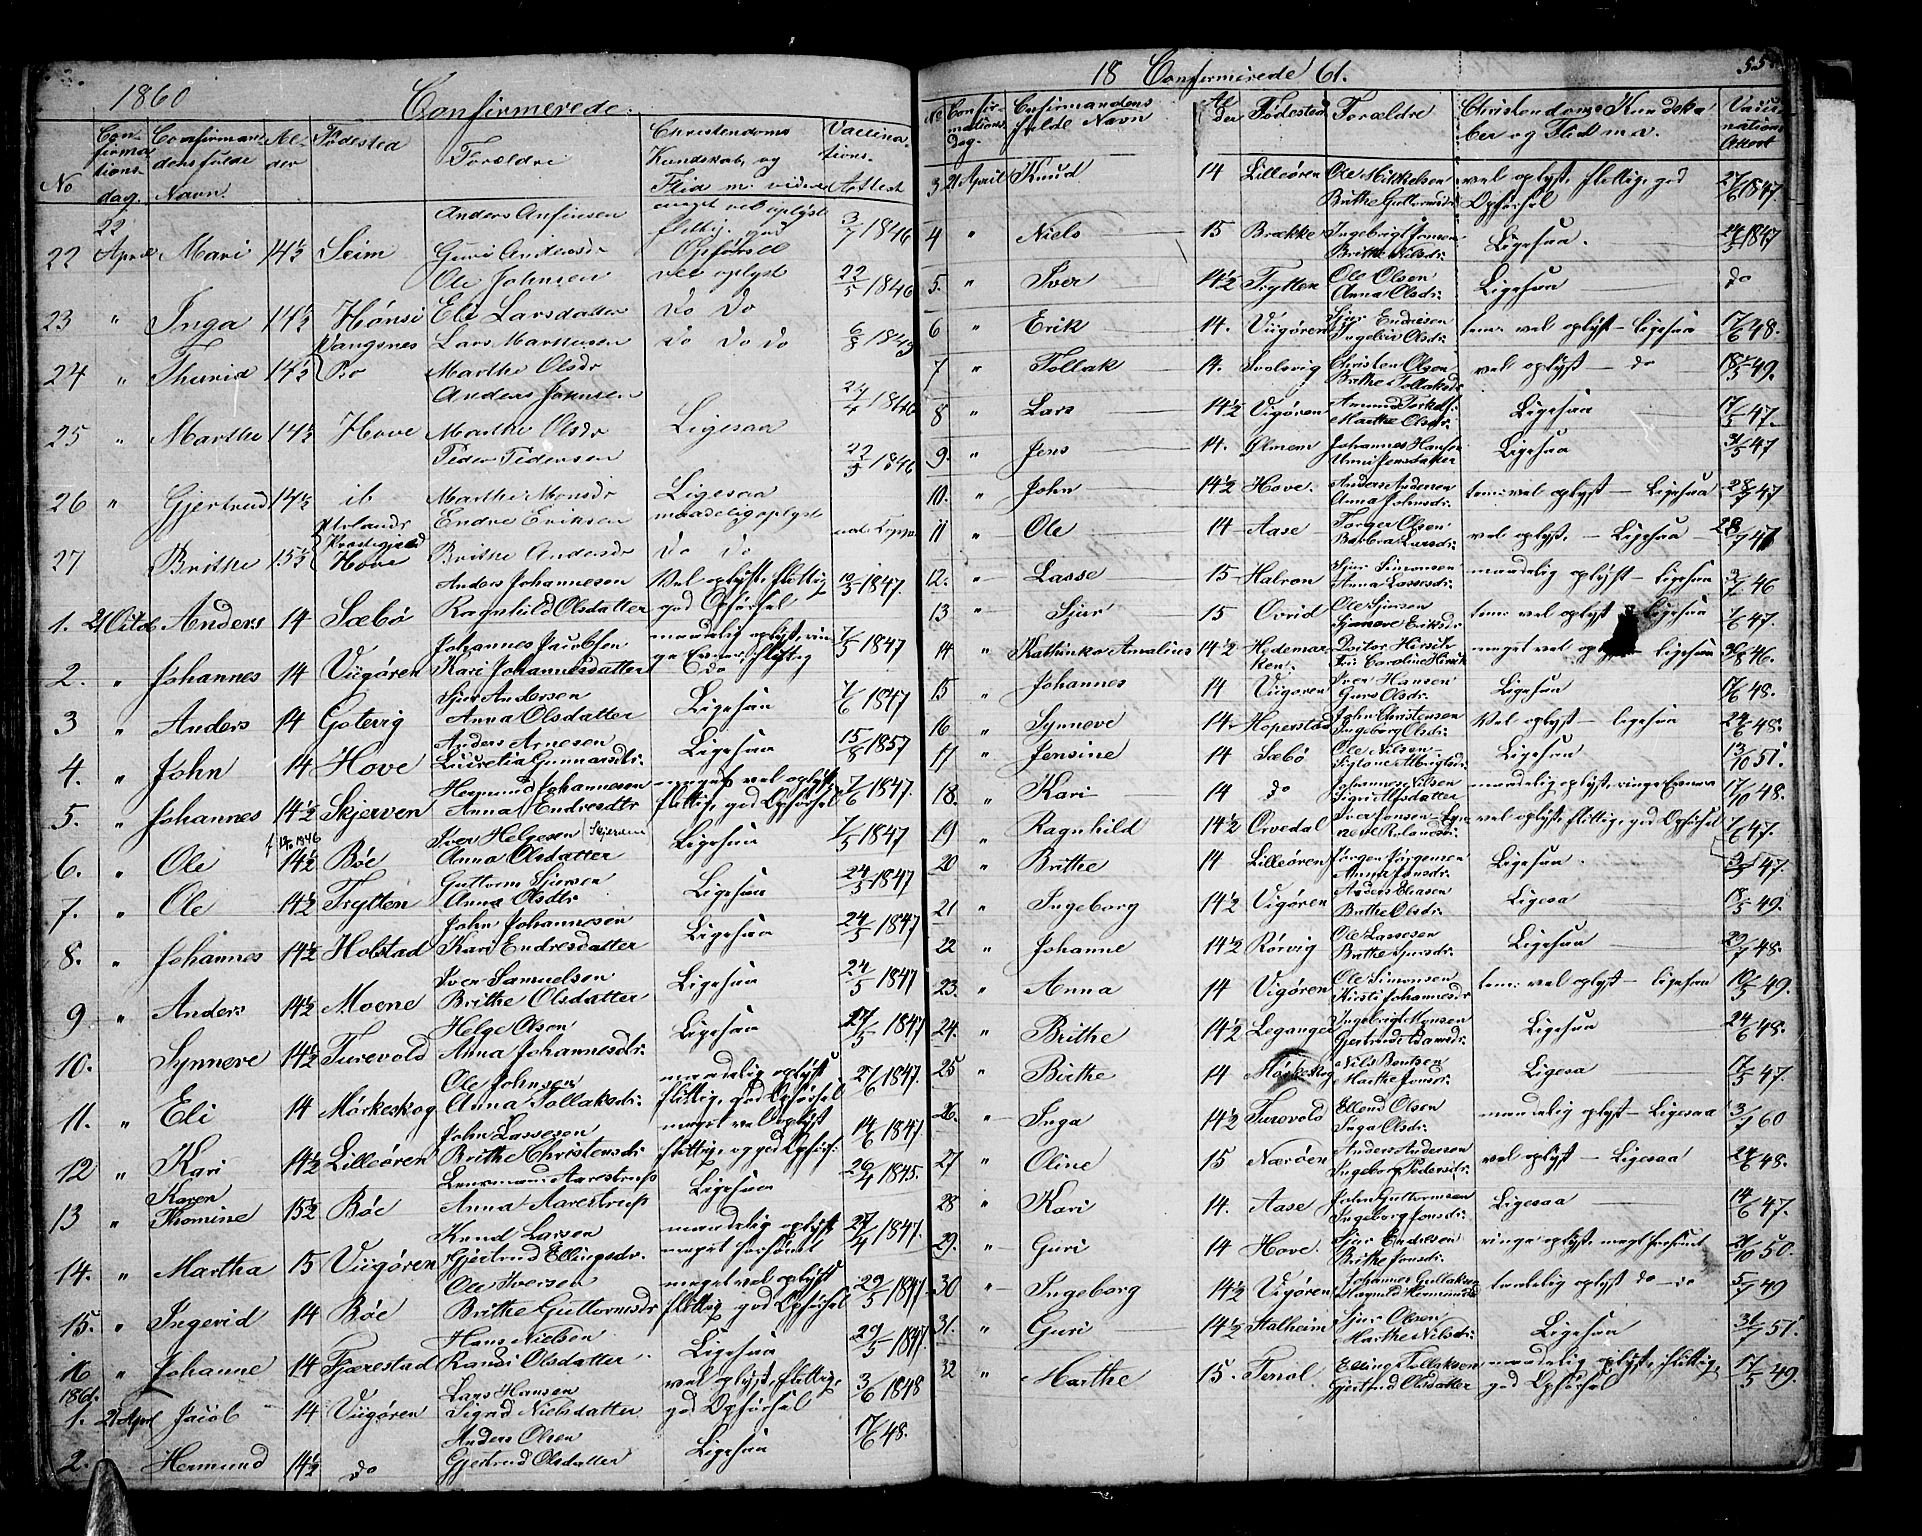 1860
Confirmerede.
No
Con-
firma-
tions-
dag.
Confirman-
dens fulde
Navn.
Al-
der
Födested
Forældre
Christendoms
Kundskab, og
Flid m. videre
Vaccina-
tions-
Attest
22 22 April Mari 14½ Seim Anders Anfinsen meget vel oplyst 3/7 1846
Guri Andersdr flittig, god Opførsel
23 " Inga 14½ Hønsi Ole Johnsen vel oplyst 22/5 1846
Eli Larsdatter do do
24 " Thurid 14½ Vangsnes Lars Markusen do do do 6/8 1843
Bø Marthe Olsdr
25 " Marthe 14½ Hove Anders Johnsen 24/4 1846
Marthe Olsdr Ligesaa
26 " Gjertrud 14½ ib Peder Pedersen 22/5 1846
Marthe Monsdr Ligesaa
27 " Brithe 15½ Urlands Præstegjæld Endre Eriksen maadelig oplyst
Hove Brithe Andersdr do do
1. 21 Octob Anders 14 Sæbö Anders Johannesen Vel oplyst, flittig, 19/5 1847.
Ragnhild Olsdatter god Opförsel
2. " Johannes 14 Viigören Johannes Jacobsen maadelig oplyst, rin- 7/5 1847
Kari Johannesdatter ge Evner, flittig do
3 " Anders 14 Gotevig Sjur Andersen Ligesaa 7/6 1847
Anna Olsdatter
4. " John 14 Hove Anders Arnesen Ligesaa 15/8 1857
Lucretia Gunnarsdr:
5. " Johannes 14½ Skjerven Hermund Johannesen meget vel oplyst 7/6 1847.
Anna Endresdtr flittig, god Opförsel
6. " Ole 14½ Böe Iver Helgesen Ligesaa 7/5 1847
Anna Olsdatter
7. " Ole 14½ Frytten Guttorm Sjursen Ligesaa 24/5 1847
Anna Olsdtr:
8. " Johannes 14½ Holstad John Johannesen Ligesaa 24/5 1847
Kari Endresdatter
9 " Anders 14½ Moene Iver Samuelsen Ligesaa 24/5 1847
Brithe Olsdatter
10. Synneve 14½ Turevold Helge Olsen Ligesaa 27/5 1847
Anna Johannesdtr:
11. " Eli 14 Mörkeskog Ole Johnsen maadelig oplyst 27/6 1847.
Anna Tollaksdr: flittig, god Opförsel
12 " Kari 14½ Lilleören John Lassesen meget vel Oplyst 14/6 1847.
Brithe Christensdr: flittig, og god Opförs:
13 " Karen Thomine 15½ Böe Lensmand Aarestrup Ligesaa 26/4 1845.
Anna Aarestrup
14. " Martha 15 Viigören Knud Larsen maadelig oplyst 27/4 1847.
Gjertrud Ellingsdr: meget forsömt
15. " Ingerid 14 Böe Ole Iversen meget vel oplyst 29/5 1847
Brithe Guttormsdr flittig, god Opförsel
16 " Johanne 14 Fjærestad Hans Nielsen Ligesaa 29/5 1847.
Randi Olsdatter
1861.
1. 21 April Jacob 14 Viigören Lars Hansen vel oplyst, flittig, 3/6 1848
Sigrid Nielsdatter god Opförsel
2. Hermund 14½ do Anders Olsen Ligesaa 17/6 48.
Gjertrud Olsdatter
18 Confirmerede 61.
55
No
Confir-
mations
Dag.
Confirmandens
fulde Navn
Al
der
Födested
Forældre
Christendoms Kundska
ber og Flid m.a.
Vacci-
nations
Attest
3. 21 April Knud 14 Lilleören Ole Mikkelsen vel oplyst, flittig, god 27/6 1847
Brithe Guttormsdr Opförsel
4 " Niels 15 Brække Ingebrigt Jonsen Ligesaa. 24/5 1847
Brithe Nilsdr:
5. " Iver 14½ Frytten Ole Olsen Ligesaa do
Anna Olsdr:
6 " Erik 14. Viigören Sjur Endresen tem: vel oplyst – ligesaa 17/6 48.
Ingebor Olsdr:
7 " Tollak 14. Solsvig Christen Olsen vel oplyst – do 18/5 49.
Brithe Tollaksdr
8 " Lars 14½ Vigören Amund Torkels: Ligesaa 17/5 47.
Marthe Olsdr:
9. " Jens 14. Ølmem Johannes Hansen Ligesaa 31/5 47
10. " John 14½ Hove. Anders Andersen tem: vel oplyst – Ligesaa 28/7 47
Anna Johnsdr:
11 " Ole 14 Aase Torger Olsen vel oplyst, – Ligesaa –
Barbra Larsdr:
12. " Lasse 15 Halron Sjur Simonsen maadelig oplyst – ligesaa 3/7 46
Anna Lassesdr:
13 " Sjur 15 Ovrid Ole Sjursen tem: vel oplyst ligesaa 7/6 47.
Synneve Eriksdr
14 " Kathinka Amalius 14½ Hedemarken: Doctor Hirsch meget vel op ligesaa
Fru Caroline Hirsch
15 " Johannes 14 Viigören Iver Hansen Ligesaa 17/6 48.
Guri Olsdr:
16 " Synneve 14. Hoperstad John Christensen Vel oplyst – ligesaa 24/6 48.
Ingeborg Olsdr:
17 " Jensine 14 Sæbö Ole Nilsen Ligesaa 13/10 51.
18. " Kari 14 do Johannes Nilsen maadelig oplyst, ringe Evner 17/10 48.
19 " Ragnhild 14½ Övedal Iver Jonsen – Syn- vel oplyst, flittig, god Opförsel 7/6 47.
20 " Brithe 14 Lilleören Jörgen Jörgensen Ligesaa. 47.
Anna Jonsdr:
21 " Ingeborg 14½ Vigören Anders Eliasen Ligesa 18/5 49.
Brithe Olsdr:
22 " Johanne 14½ Rörvig Ole Lassesen Ligesaa 29/7 48.
Brithe Sjursdr:
23. " Anna 14 Vigören Ole Simonsen tem: vel oplyst – ligesaa 19/5 49.
Kirsti Johannesdr
24. " Brithe 14½ Leganger Ingebrigt Monsen Ligesaa 24/6 48.
25 " Birthe 14 Mörkeskog Nils Bentsen Ligesa 17/5 47.
Marthe Jonsdr:
26. " Inga 14½ Turevold Ellend Olsen maadelig oplyst – Ligesaa 3/7 60
Inga Olsdr:
27 " Oline 15 Næröen Anders Andersen vel oplyst – Ligesaa 24/6 48.
Ingeborg Pedersdr:
28 " Kari 14. Aase John Guttormsen Ligesaa 14/6 47.
Ingeborg Jonsdr:
29. " Guri 14 Hove. Sjur Endresen ringe oplyst, megt forsömt 21/10 50.
Brithe Jonsdr:
30 " Ingeborg 14½ Vigören Johannes Gullaksen do – do 5/7 49
Ragnild Hermundsdr
31. " Guri 14½ Stalheim Sjur Olsen Ligesaa 31/7 51.
Marthe Nilsdr:
32 " Marthe 15. Ferdl Elling Tollaksen maadelig oplyst, flittig, 17/5 49.
Gjertrud Olsdatter god Opförsel